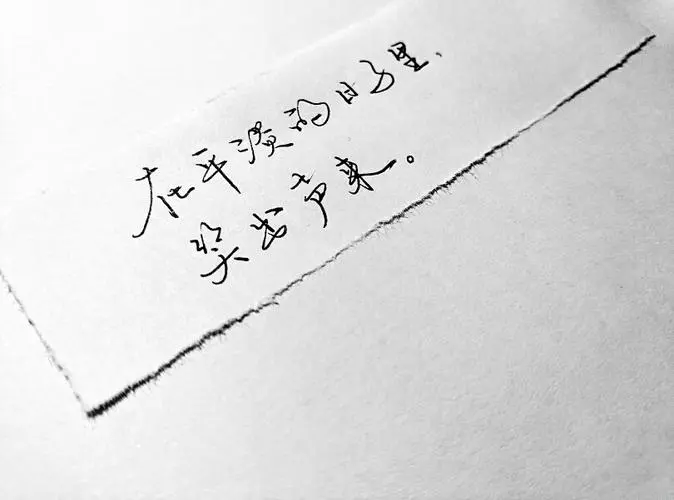 在平淡的日子里，
笑出声来。